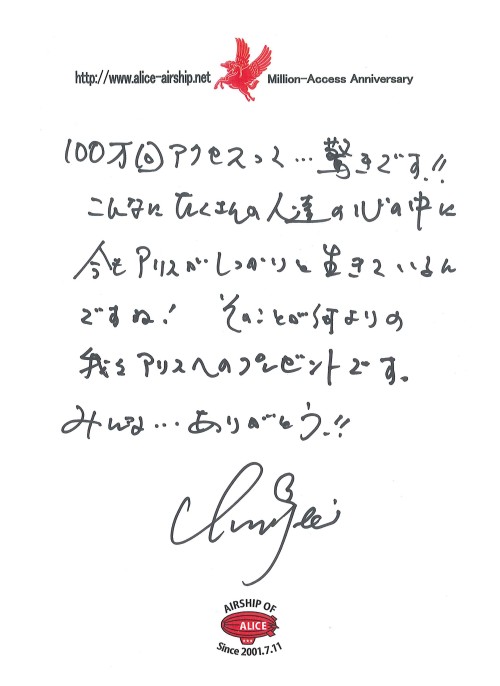 http://www.alice-airship.net Million-Access Anniversary
100万回アクセスって…驚きです!!
こんなにたくさんの人達の心の中に
今もアリスがしっかりと生きているん
ですね! そのことが何よりの
我らアリスへのプレゼントです。
みんな…ありがとう!!
AIRSHIP OF
ALICE
Since 2001.7.11